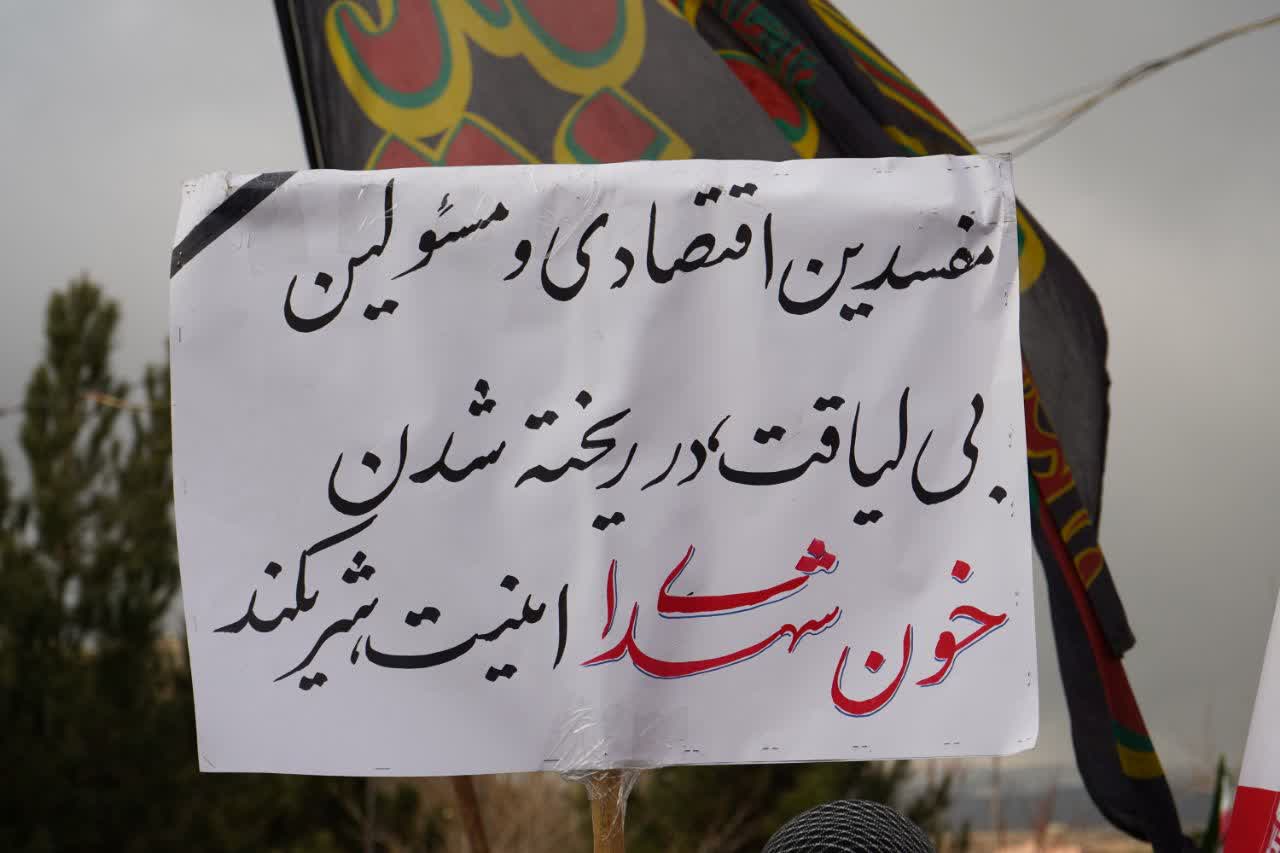 مفسدین اقتصادی و مسئولین
بی لیاقت، در ریخته شدن
خون شهدای امنیت، شریکند